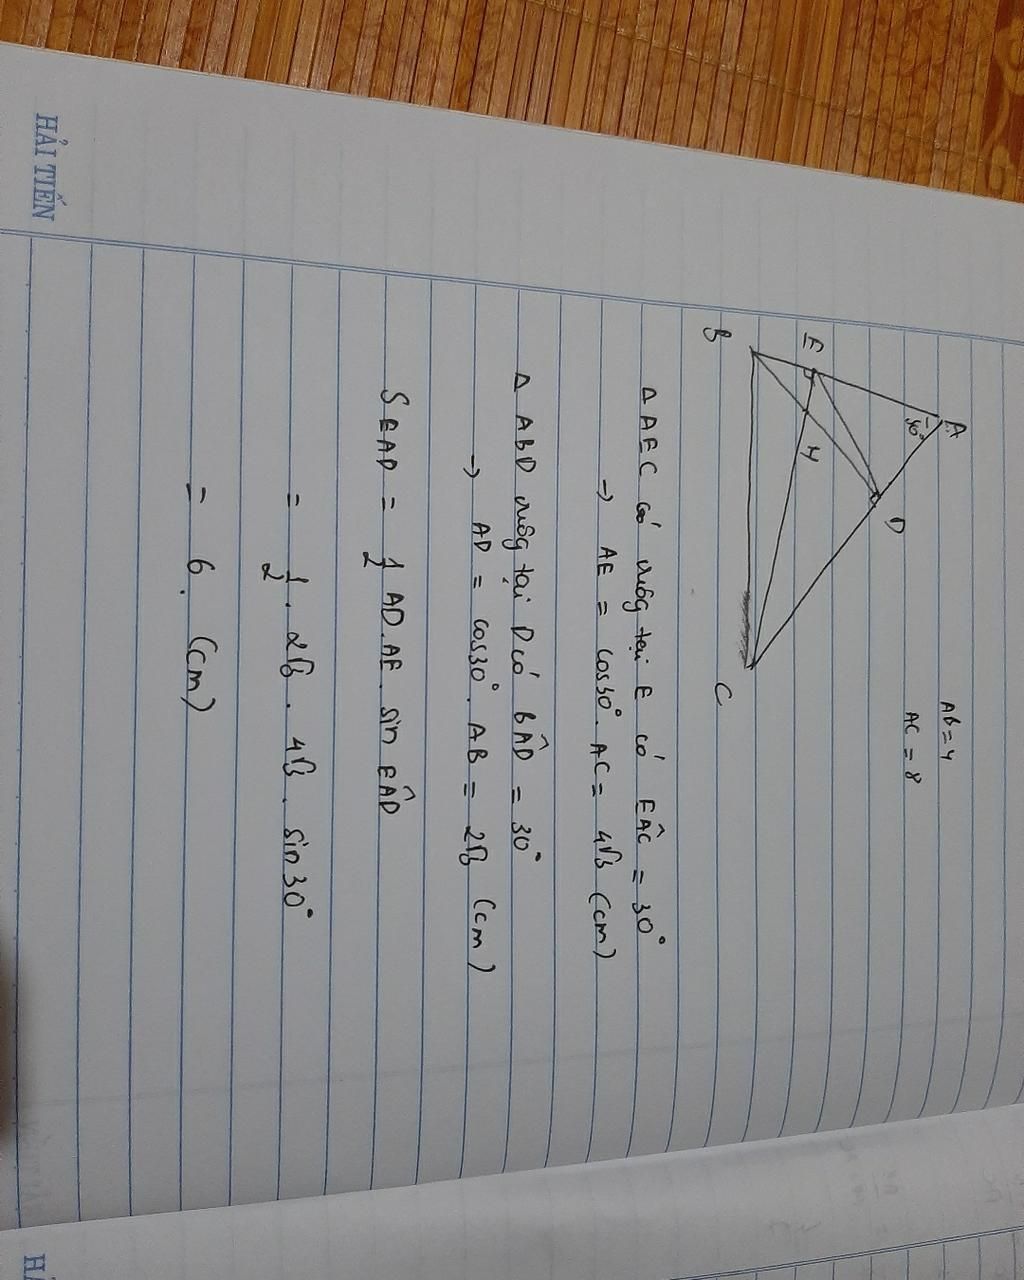 HẢI TIẾN
AB = 4
AC = 8
A
30°
D
E
H
B
C
Δ AEC có vuôg tại E có EÂC = 30°
→ AE = cos30°. AC = 4√3 (cm)
Δ ABD vuôg tại D có BÂD = 30°
→ AD = cos30°. AB = 2√3 (cm)
S EAD = 1/2 AD. AE. sin EÂD
= 1/2 . 2√3 . 4√3 . sin 30°
= 6. (cm)